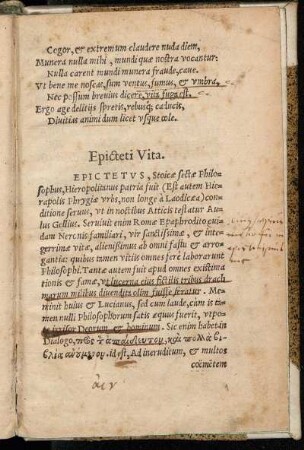 Cogor, & extremum claudere nuda diem,
Munera nulla mihi, mundi quæ nostra vocantur:
Nulla carent mundi munera fraude, caue.
Vt bene me noscas, sum ventus, fumus, & vmbra,
Nec possum breuius dicere, vita fugax est.
Ergo age delitijs spretis, rebusq; caducis,
Diuitias animi dum licet vsque cole.
Epicteti Vita.
EPICTETVS, Stoicæ sectæ Philo-
sophus, Hieropolitanus patria fuit (Est autem Hie-
rapolis Phrygiæ vrbs, non longe à Laodicæa) con-
ditione seruus, vt in noctibus Atticis testatur Au-
lus Gellius. Seruiuit enim Romæ Epaphrodito cui-
dam Neronis familiari, vir sanctissimæ, & int-
gerrimæ vitæ, alienissimus ab omni fastu & arro-
gantia: quibus in men vitijs omnes fere laborarunt
Philosophi. Tantæ autem fuit apud omnes existima
tionis & famæ, vt lucerna eius fictilis tribus drach
marum milibus diuendita olim fuisse feratur. Me-
minit huius & Lucianus, sed cum laude, cum is ta-
men nulli Philosophorum satis æquus fuerit, vtpo-
te irrisor Deorum, & hominum. Sic enim habet in
Dialogo, πρὸς τ ἀπαίδευτον, καὶ πολλὰ βι-
βλία Id est, Ad ineruditum, & multos